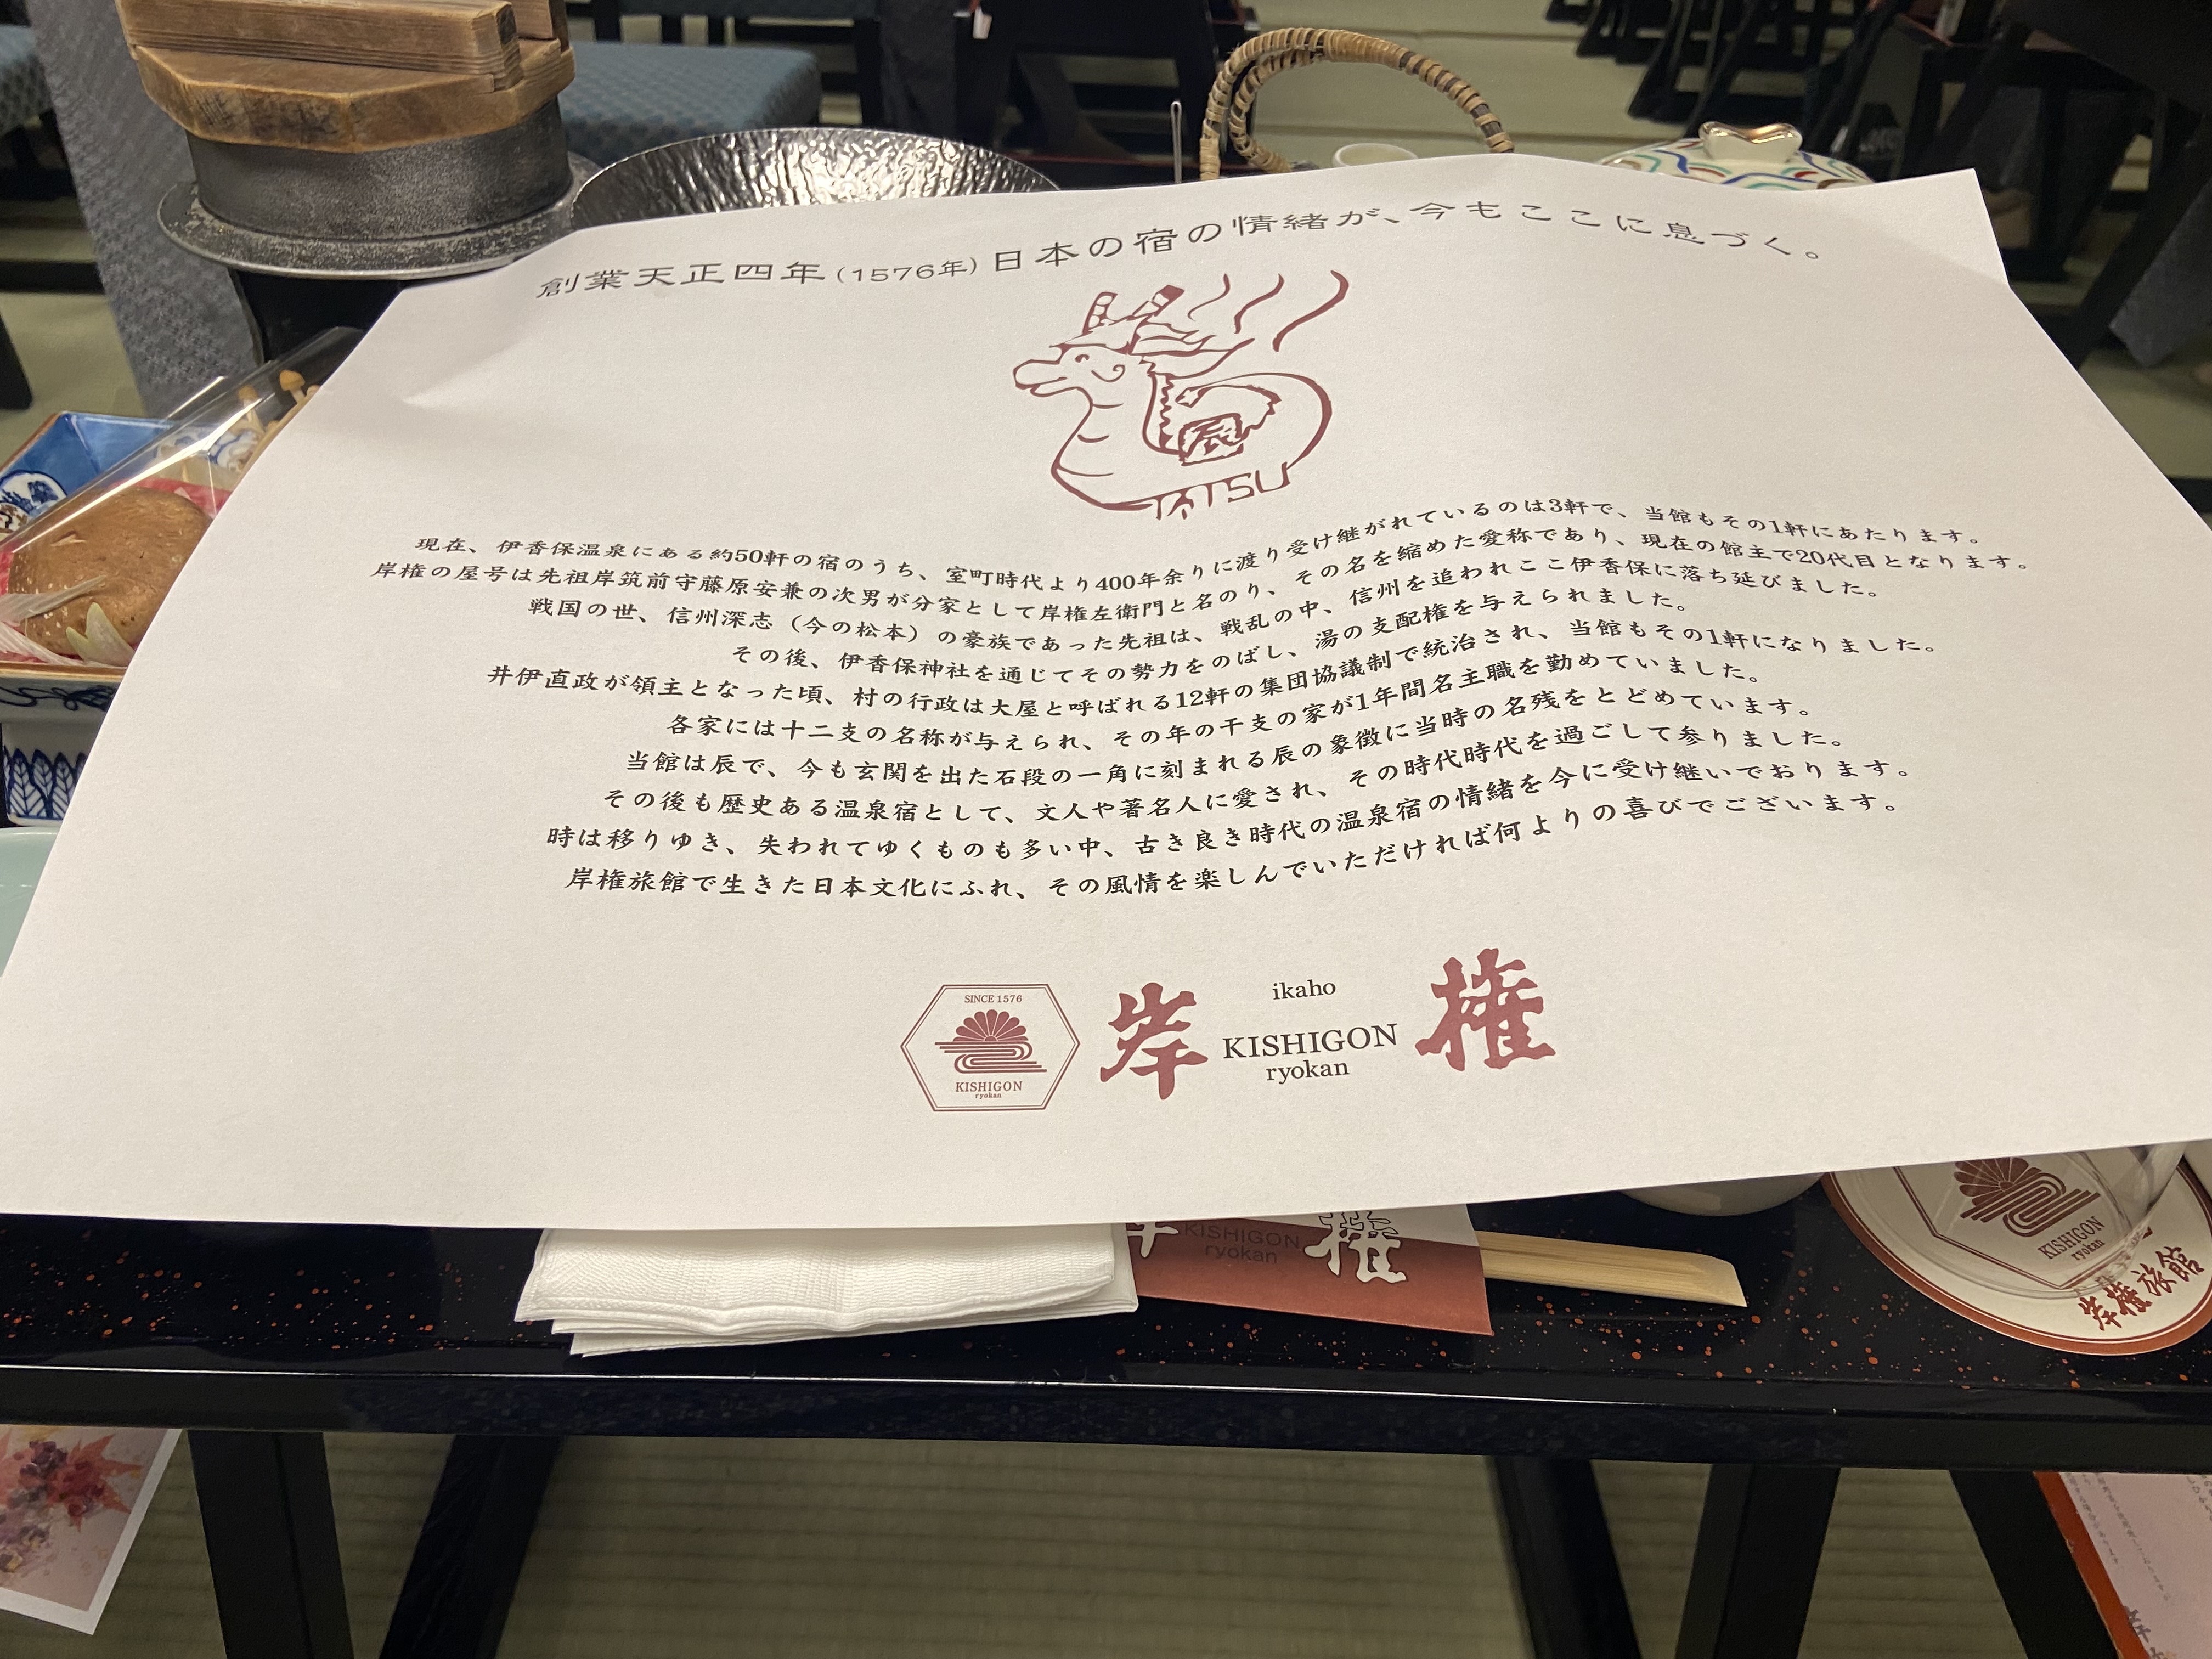 創業天正四年(1576年)日本の宿の情緒が、今もここに息づく。
辰
TATSU
現在、伊香保温泉にある約50軒の宿のうち、室町時代より400年余りに渡り受け継がれているのは3軒で、当館もその1軒にあたります。
岸権の屋号は先祖岸筑前守藤原安兼の次男が分家として岸権左衛門と名のり、その名を縮めた愛称であり、現在の館主で20代目となります。
戦国の世、信州深志（今の松本）の豪族であった先祖は、戦乱の中、信州を追われここ伊香保に落ち延びました。
その後、伊香保神社を通じてその勢力をのばし、湯の支配権を与えられました。
井伊直政が領主となった頃、村の行政は大屋と呼ばれる12軒の集団協議制で統治され、当館もその1軒になりました。
各家には十二支の名称が与えられ、その年の干支の家が1年間名主職を勤めていました。
当館は辰で、今も玄関を出た石段の一角に刻まれる辰の象徴に当時の名残をとどめています。
その後も歴史ある温泉宿として、文人や著名人に愛され、その時代時代を過ごして参りました。
時は移りゆき、失われてゆくものも多い中、古き良き時代の温泉宿の情緒を今に受け継いでおります。
岸権旅館で生きた日本文化にふれ、その風情を楽しんでいただければ何よりの喜びでございます。
SINCE 1576
KISHIGON
ryokan
岸 権
ikaho
KISHIGON
ryokan
KISHIGON
ryokan
権
KISHIGON
ryokan
岸権旅館